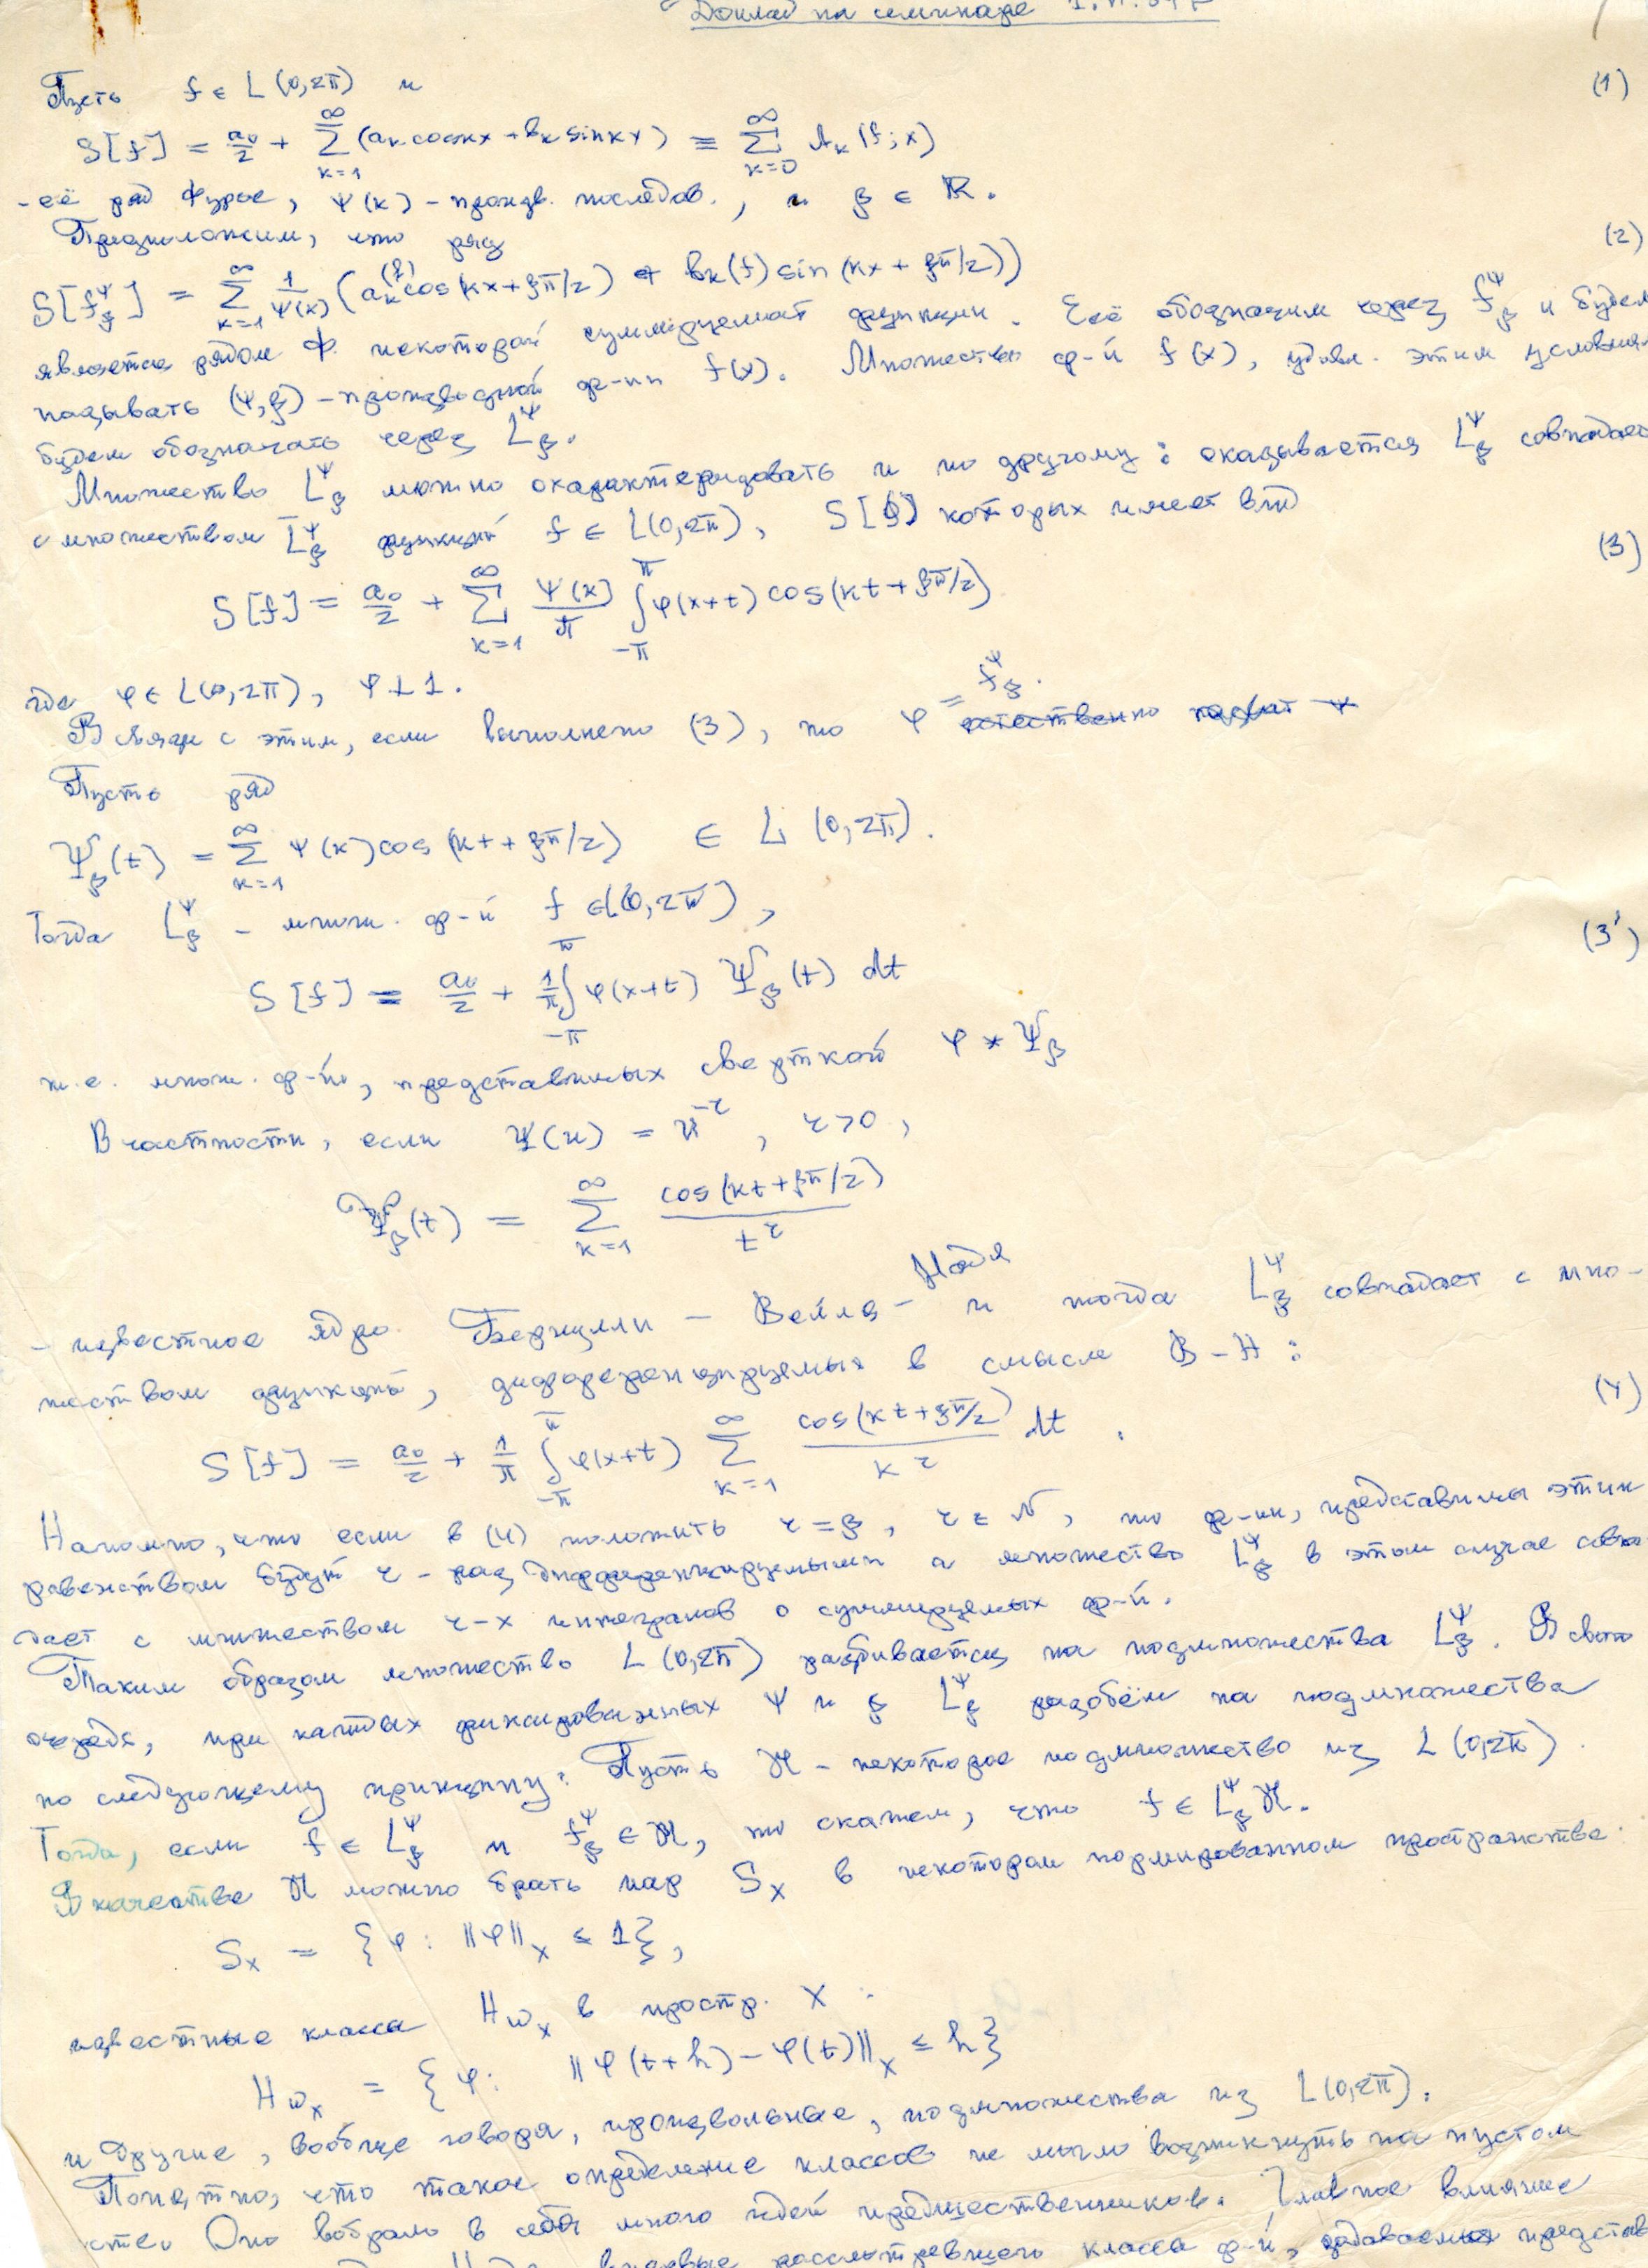 Доклад на семинаре
Пусть f ∈ L(0,2π) и (1)
S[f] = a₀/2 + ∑_{k=1}^{∞} (aₖ cos kx + bₖ sin kx) ≡ ∑_{k=0}^{∞} Aₖ(f;x)
- её ряд Фурье, ψ(k) - произв. последов., и β ∈ ℝ.
Предположим, что ряд (2)
S[f_β^ψ] = ∑_{k=1}^{∞} 1/ψ(k) (aₖ(f) cos(kx + βπ/2) + bₖ(f) sin(kx + βπ/2))
является рядом Ф. некоторой суммируемой функции. Её обозначим через f_β^ψ и будем
называть (ψ,β) - производной ф-ии f(x). Множество ф-й f(x), удовл. этим условия
будем обозначать через L_β^ψ.
Множество L_β^ψ можно охарактеризовать и по другому: оказывается L_β^ψ совпадает
с множеством L̄_β^ψ функций f ∈ L(0,2π), S[f] которых имеет вид
S[f] = a₀/2 + ∑_{k=1}^{∞} ψ(k)/π ∫_{-π}^{π} φ(x+t) cos(kt + βπ/2) (3)
где φ ∈ L(0,2π), φ ⊥ 1.
В связи с этим, если выполнено (3), то φ = f_β^ψ.
Пусть ряд
Ψ_β(t) = ∑_{k=1}^{∞} ψ(k) cos(kt + βπ/2) ∈ L(0,2π).
Тогда L_β^ψ - множ. ф-й f ∈ L(0,2π),
S[f] = a₀/2 + 1/π ∫_{-π}^{π} φ(x+t) Ψ_β(t) dt (3')
т.е. множ. ф-й, представимых сверткой φ * Ψ_β
В частности, если ψ(k) = k^{-r}, r > 0,
Ψ_β(t) = ∑_{k=1}^{∞} cos(kt + βπ/2) / t^r
- известное ядро Бернулли - Вейля - Надя и тогда L_β^ψ совпадает с мно-
жеством функций, дифференцируемых в смысле В-Н:
S[f] = a₀/2 + 1/π ∫_{-π}^{π} φ(x+t) ∑_{k=1}^{∞} cos(kt + βπ/2) / k^r dt. (4)
Напомню, что если в (4) положить r = β, r ∈ N, то ф-ии, представимы этим
равенством будут r - раз дифференцируемыми а множество L_β^ψ в этом случае совпа
дает с множеством r-х интегралов о суммируемых ф-й.
Таким образом множество L(0,2π) разбивается на подмножества L_β^ψ. В свою
очередь, при каждых фиксированных ψ и β L_β^ψ разобьём на подмножества
по следующему принципу: Пусть 𝔑 - некоторое подмножество из L(0,2π).
Тогда, если f ∈ L_β^ψ и f_β^ψ ∈ 𝔑, то скажем, что f ∈ L_β^ψ 𝔑.
В качестве 𝔑 можно брать шар S_X в некотором нормированном пространстве
S_X = {φ: ||φ||_X ≤ 1},
известные класса Hω_X в простр. X:
Hω_X = {φ: ||φ(t+h) - φ(t)||_X ≤ h}
и другие, вообще говоря, произвольные, подмножества из L(0,2π).
Понятно, что такое определение классов не могло возникнуть на пустом
месте. Оно вобрало в себя много идей предшественников. Главное влияние
впервые рассмотревшего класса ф-й, задаваемых представ